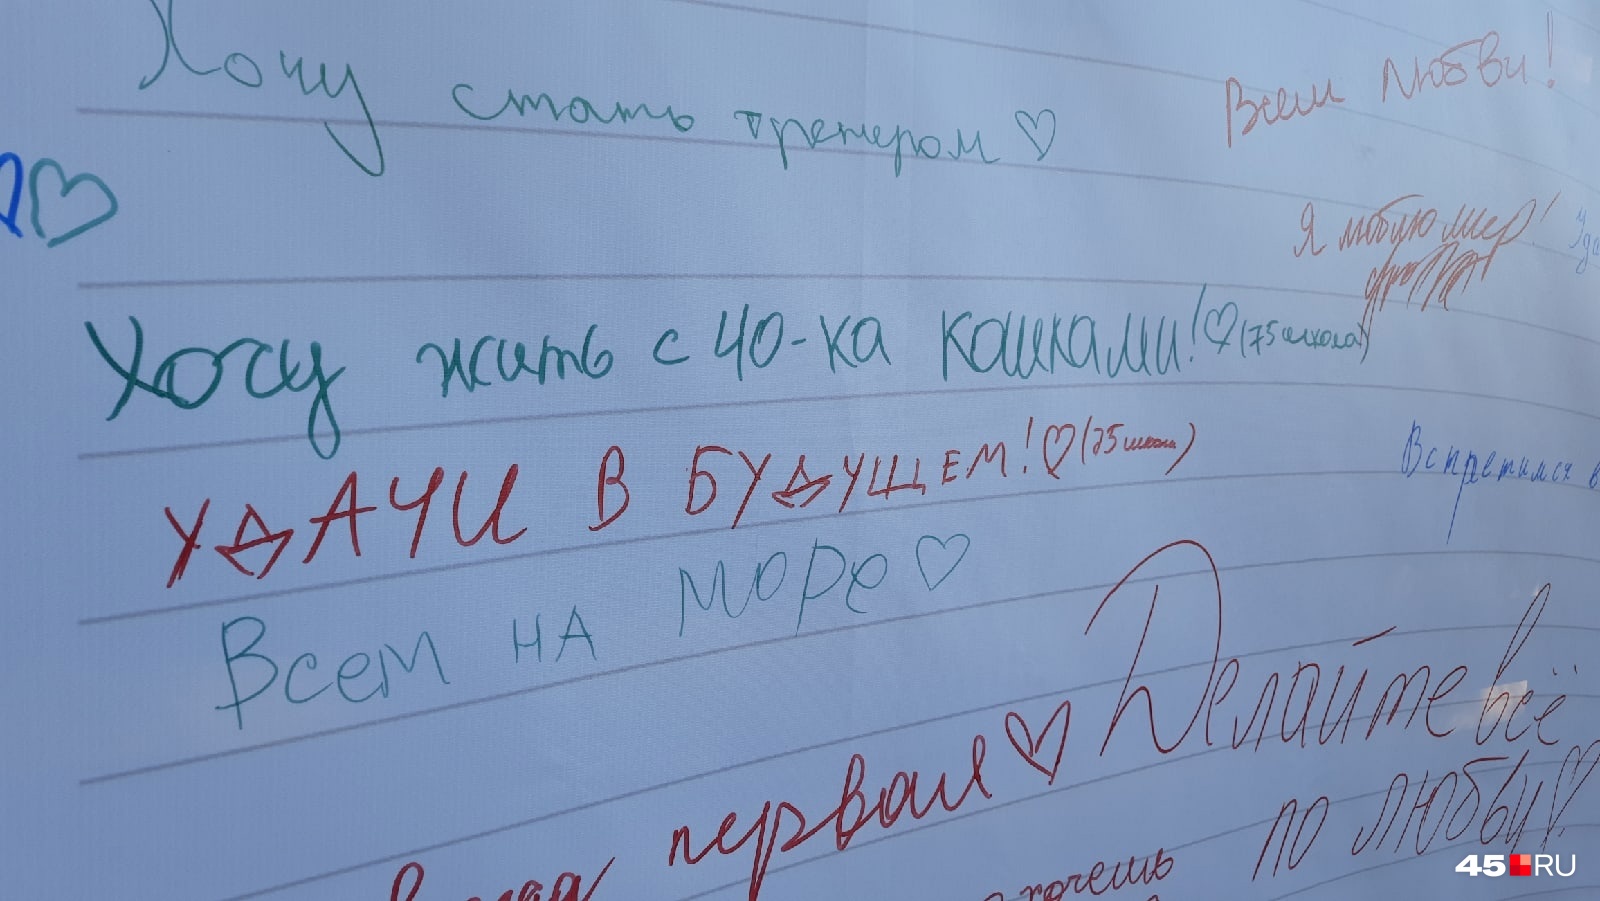 Хочу стать тренером ♡
Всем любви!
Я люблю мир!
Хочу жить с 40-ка кошками! ♡ (75 школа)
УДАЧИ В БУДУЩЕМ! ♡ (75 школа)
Встретимся в
Всем НА МОРЕ ♡
Делайте всё
по любви ♡
первая ♡
хочешь
45 RU